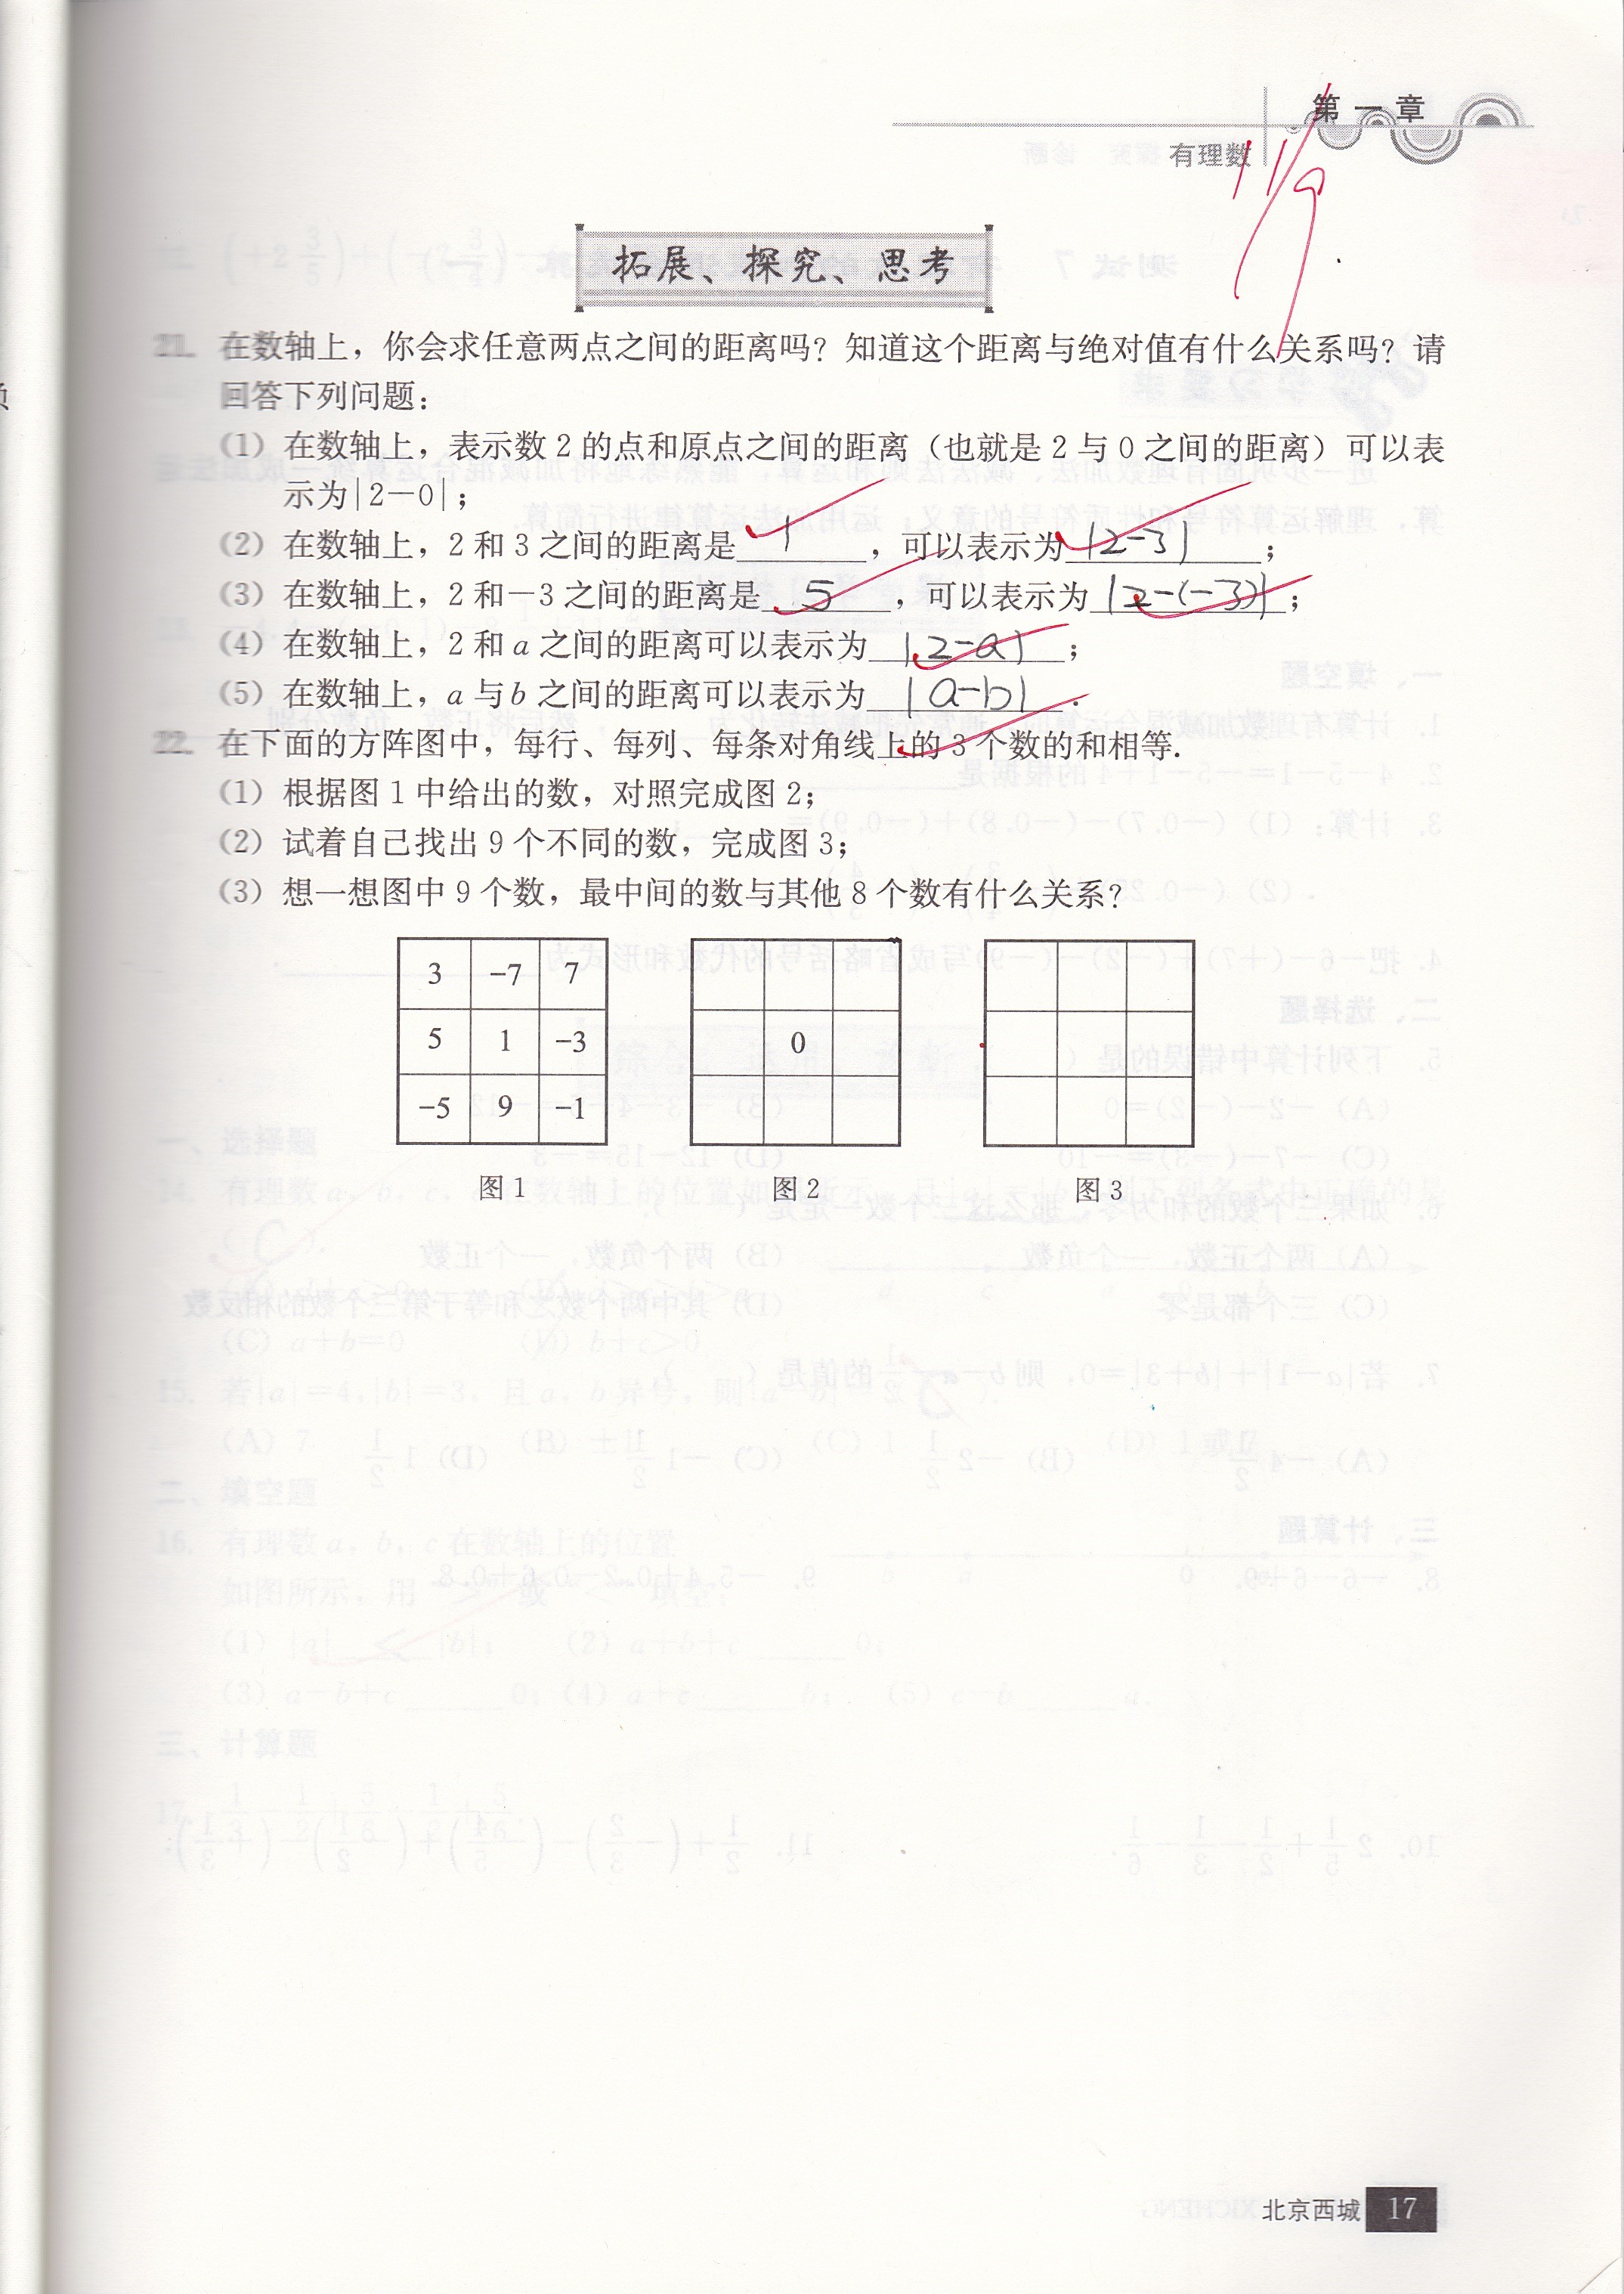 第一章
有理数
11/9
拓展、探究、思考
21. 在数轴上，你会求任意两点之间的距离吗？知道这个距离与绝对值有什么关系吗？请
回答下列问题：
(1) 在数轴上，表示数2的点和原点之间的距离（也就是2与0之间的距离）可以表
示为|2－0|；
(2) 在数轴上，2和3之间的距离是 1 ，可以表示为 |2-3| ；
(3) 在数轴上，2和－3之间的距离是 5 ，可以表示为 |2-(-3)| ；
(4) 在数轴上，2和a之间的距离可以表示为 |2-a| ；
(5) 在数轴上，a与b之间的距离可以表示为 |a-b| .
22. 在下面的方阵图中，每行、每列、每条对角线上的3个数的和相等.
(1) 根据图1中给出的数，对照完成图2；
(2) 试着自己找出9个不同的数，完成图3；
(3) 想一想图中9个数，最中间的数与其他8个数有什么关系？
3 -7 7
5 1 -3 0
-5 9 -1
图1 图2 图3
北京西城 17